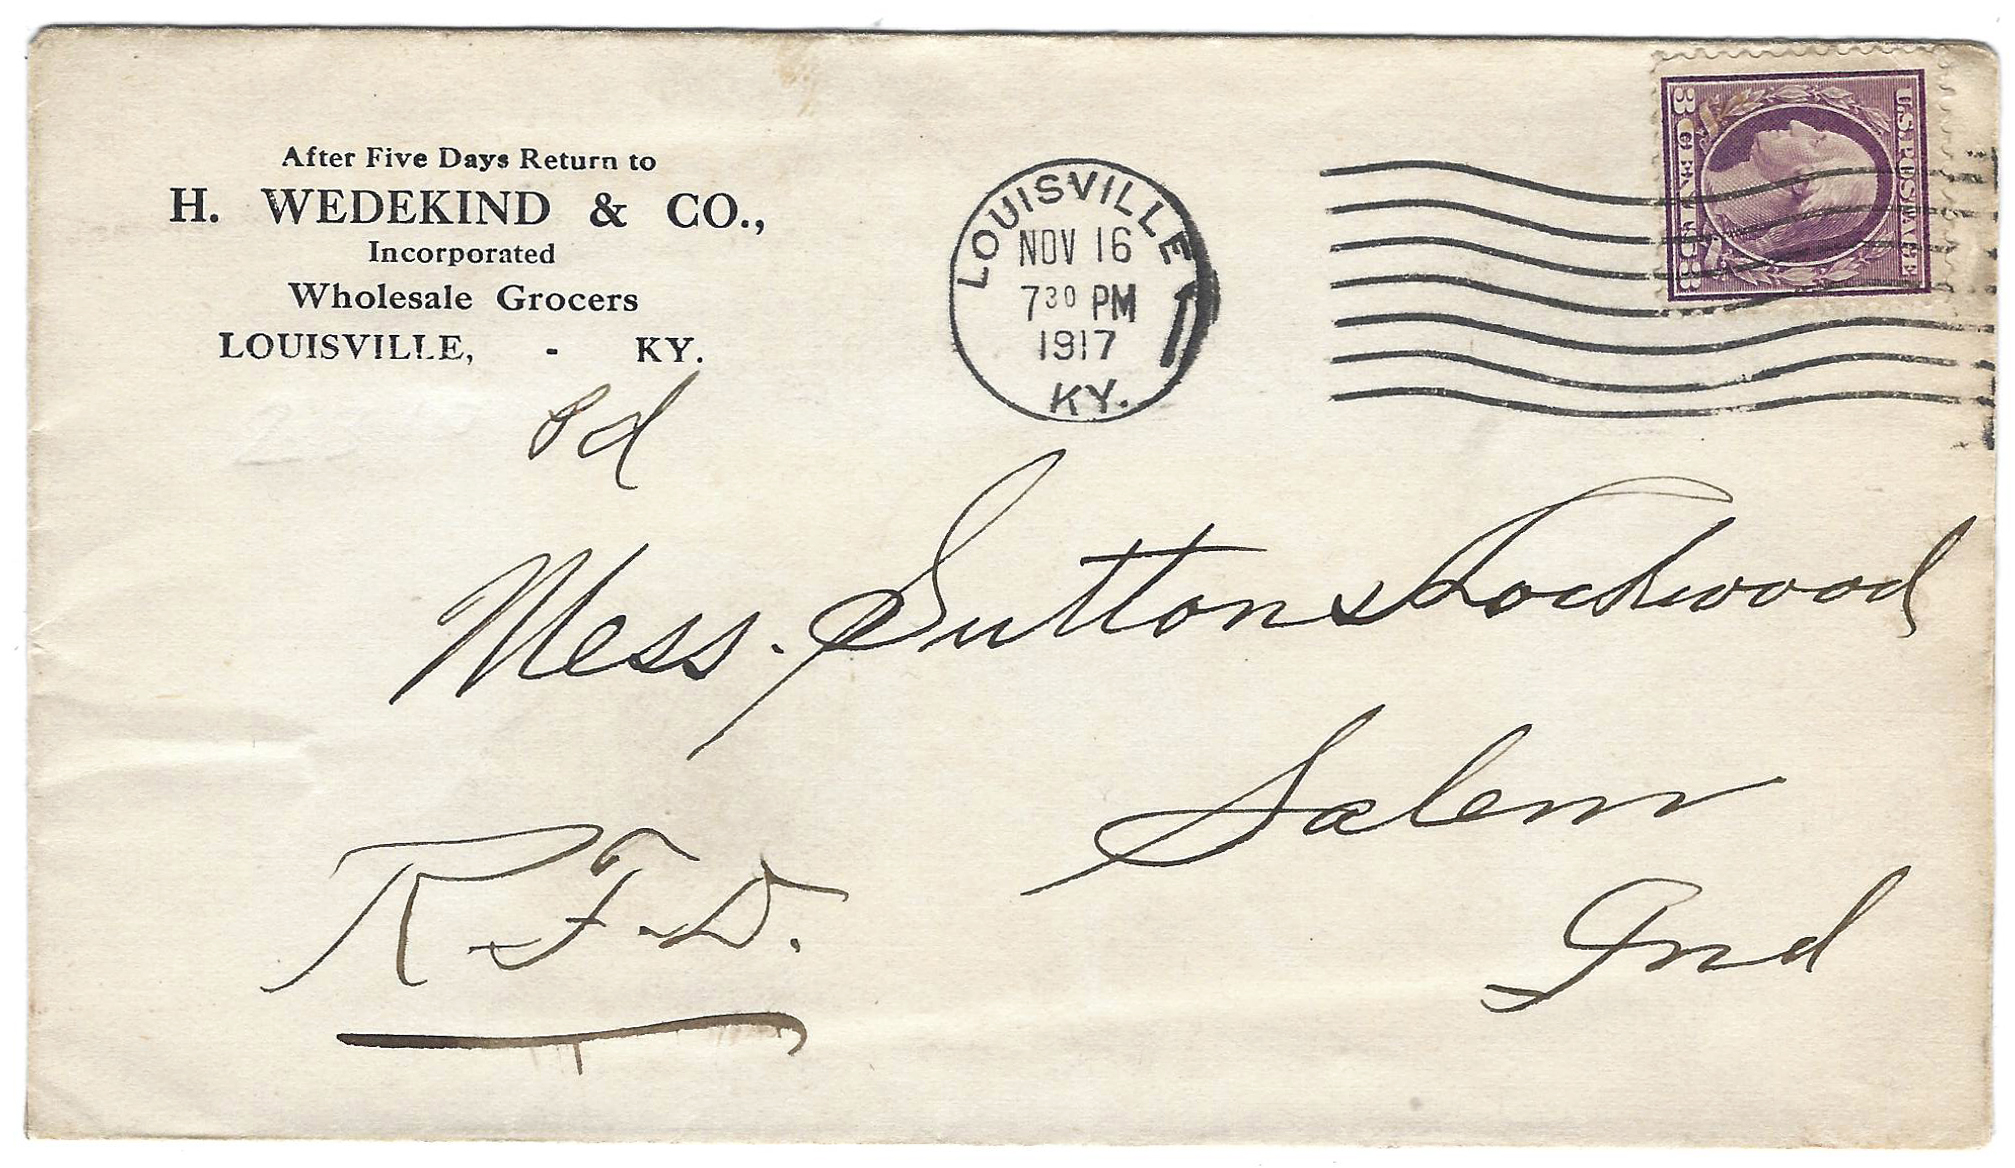 After Five Days Return to
H. WEDEKIND & CO.,
Incorporated
Wholesale Grocers
LOUISVILLE, - KY.
LOUISVILLE
NOV 16
7 30 PM
1917
KY.
U.S. POSTAGE
3 CENTS 3
Mess. Suttons & Lockwood
Salem
Ind
R.F.D.